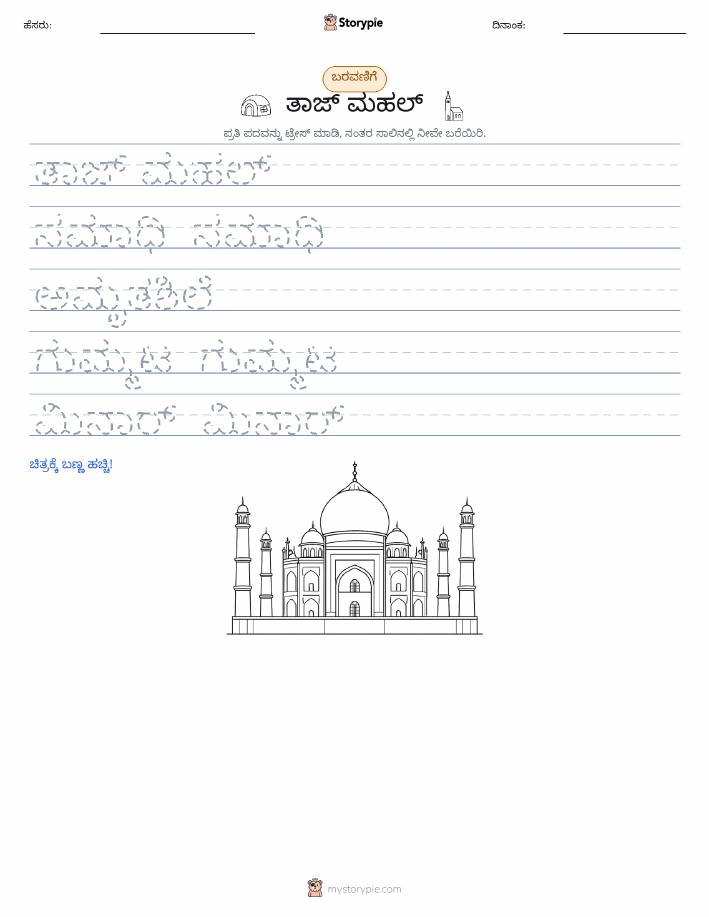 ಹೆಸರು: Storypie ದಿನಾಂಕ:
ಬರವಣಿಗೆ
ತಾಜ್ ಮಹಲ್
ಪ್ರತಿ ಪದವನ್ನು ಟ್ರೇಸ್ ಮಾಡಿ, ನಂತರ ಸಾಲಿನಲ್ಲಿ ನೀವೇ ಬರೆಯಿರಿ.
ತಾಜ್ ಮಹಲ್
ಸಮಾಧಿ ಸಮಾಧಿ
ಅಮೃತಶಿಲೆ
ಗುಮ್ಮಟ ಗುಮ್ಮಟ
ಮಿನಾರ್ ಮಿನಾರ್
ಚಿತ್ರಕ್ಕೆ ಬಣ್ಣ ಹಚ್ಚಿ!
mystorypie.com